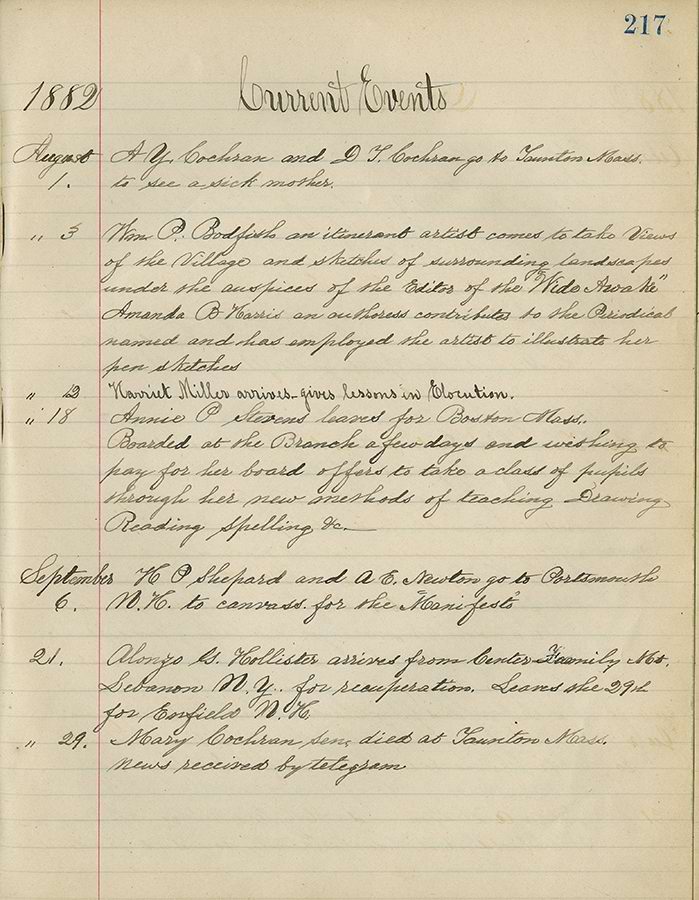 217
1882 Current Events
August A Y. Cochran and D T. Cochran go to Taunton Mass.
1. to see a sick mother.
" 3 Wm P. Bodfish an itinerant artist comes to take Views
of the Village and sketches of surrounding landscapes
under the auspices of the Editor of the "Wide Awake"
Amanda B Harris an authoress contributes to the Periodical
named and has employed the artist to illustrate her
pen sketches
" 12 Harriet Miller arrives - gives lessons in Elocution.
" 18 Annie P Stevens leaves for Boston Mass.
Boarded at the Branch a few days and wishing to
pay for her board offers to take a class of pupils
through her new methods of teaching Drawing
Reading Spelling &c.
September H P Shepard and A E. Newton go to Portsmouth
6. N.H. to canvass for the "Manifesto"
21. Alonzo G. Hollister arrives from Center Family Mt.
Lebanon N.Y. for recuperation. Leaves the 29th
for Enfield N.H.
" 29. Mary Cochran sen. died at Taunton Mass.
News received by telegram